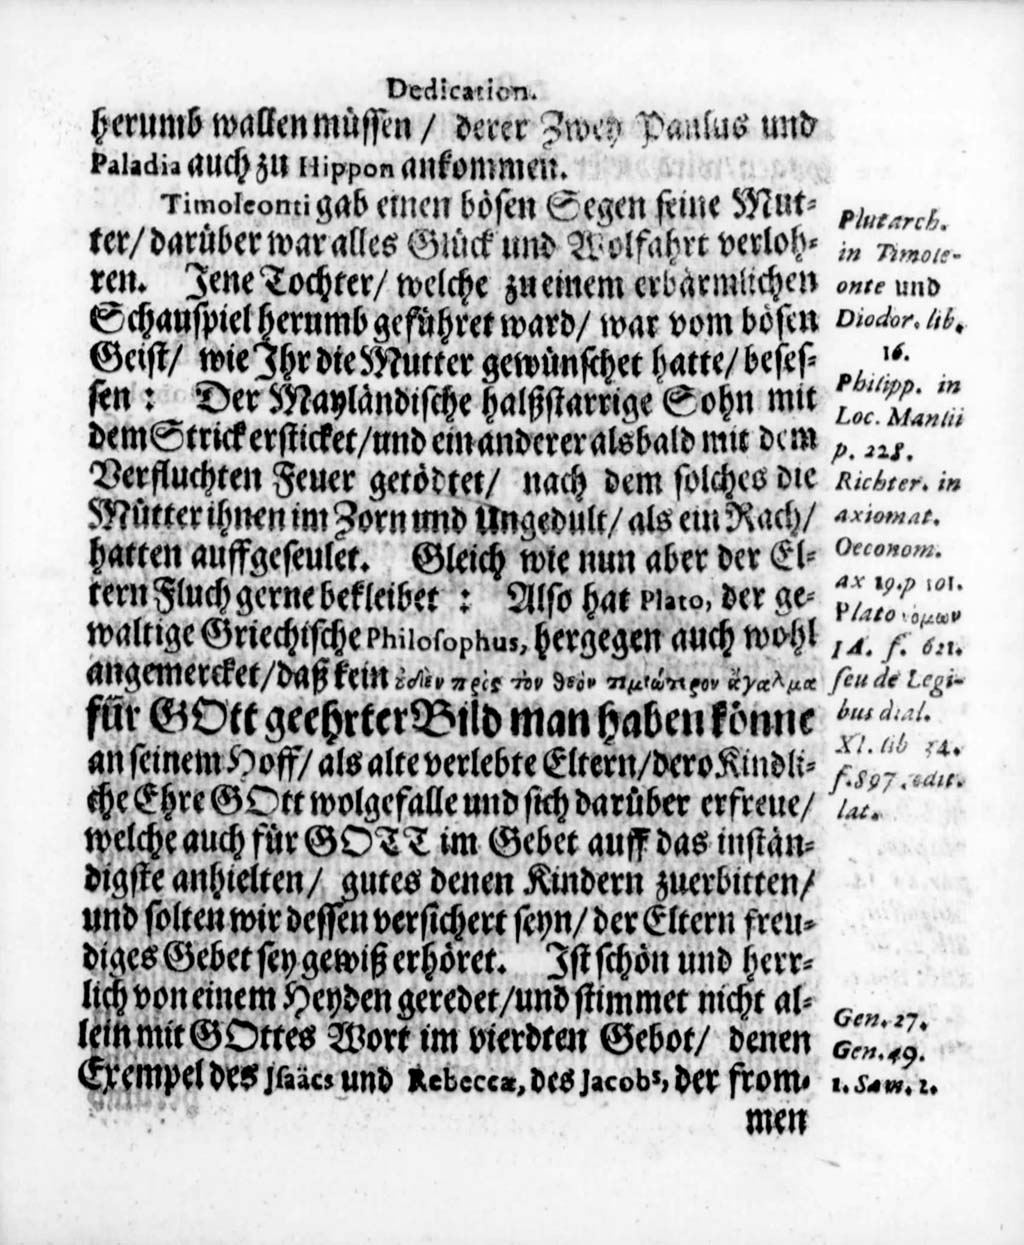 Dedication.
herumb wallen müssen / derer Zwey Paulus und
Paladia auch zu Hippon ankommen.
Timoleonti gab einen bösen Segen seine Mut-
ter/ darüber war alles Glück und Wolfahrt verloh-
ren. Jene Tochter/ welche zu einem erbärmlichen
Schauspiel herumb geführet ward/ war vom bösen
Geist/ wie Ihr die Mutter gewünschet hatte/ beses-
sen : Der Mayländische halßstarrige Sohn mit
dem Strick ersticket/ und ein anderer alsbald mit dem
Verfluchten Feuer getödtet/ nach dem solches die
Mütter ihnen im Zorn und Ungedult/ als ein Rach/
hatten auffgeseulet. Gleich wie nun aber der El-
tern Fluch gerne bekleibet : Also hat Plato, der ge-
waltige Griechische Philosophus, hergegen auch wohl
angemercket/ daß kein ἐδὲν πρὸς τὸν θεὸν τιμιώτερον ἄγαλμα
für GOtt geehrter Bild man haben könne
an seinem Hoff/ als alte verlebte Eltern/ dero Kindli-
che Ehre GOtt wolgefalle und sich darüber erfreue/
welche auch für GOTT im Gebet auff das instän-
digste anhielten/ gutes denen Kindern zuerbitten/
und solten wir dessen versichert seyn/ der Eltern freu-
diges Gebet sey gewiß erhöret. Ist schön und herr-
lich von einem Heyden geredet/ und stimmet nicht al-
lein mit GOttes Wort im vierdten Gebot/ denen
Exempel des Isaäcs und Rebeccæ, des Jacobs, der from-
men
Plutarch.
in Timole-
onte und
Diodor. lib.
16.
Philipp. in
Loc. Manlii
p. 228.
Richter. in
axiomat.
Oeconom.
ax 19. p 101.
Plato νόμων
ΙΑ. f. 621.
seu de Legi-
bus dial.
XI. lib 34.
f. 897. edit.
lat.
Gen. 27.
Gen. 49.
1. Sam. 1.